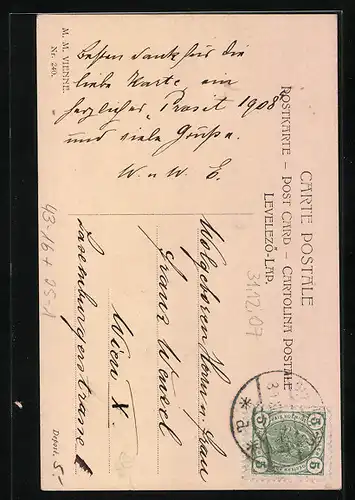 CARTE POSTALE
POSTKARTE – POST CARD – CARTOLINA POSTALE
LEVELEZŐ-LAP.
M. M. VIENNE.
Nr. 240.
Besten Dank für die
liebe Karte, ein
herzliches „Prosit 1908
und viele Grüße.
W. u W. E.
31.12.07
Wolgeboren Herrn u. Frau
Franz
Wien X.
Laxenburgerstrasse
43-16+ 05-1
Deposé. 5-
5 5
5 5